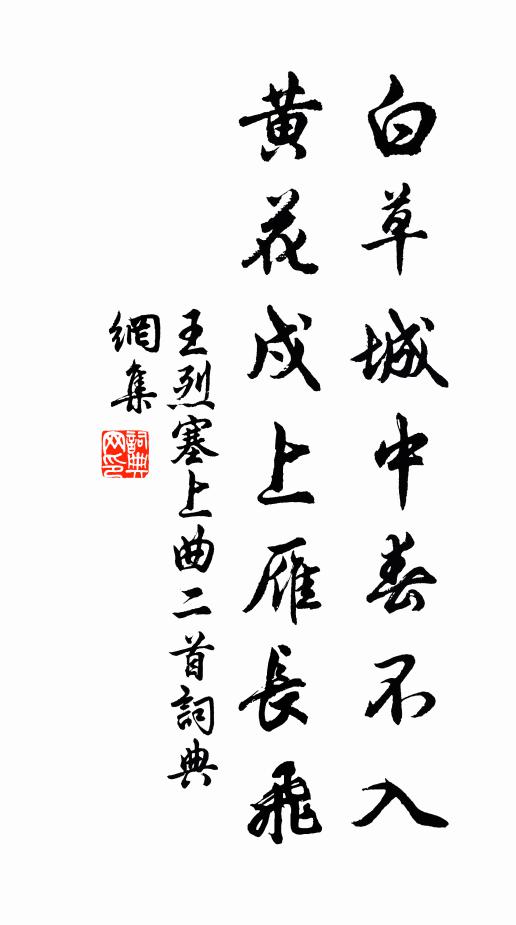 白草城中春不入
黄花戍上雁長飛
王烈塞上曲二首詞典
網集
詞典網印